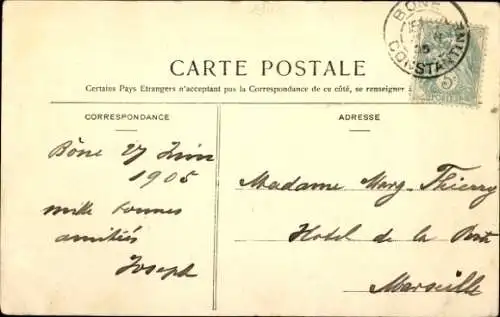 BÔNE
CONSTANTINE
CARTE POSTALE
Certains Pays Etrangers n'acceptant pas la Correspondance de ce côté, se renseigner
CORRESPONDANCE
ADRESSE
Bône 27 Juin
1905
mille bonnes
amitiés
Joseph
Madame Marg. Thierry
Hotel de la Poste
Marseille